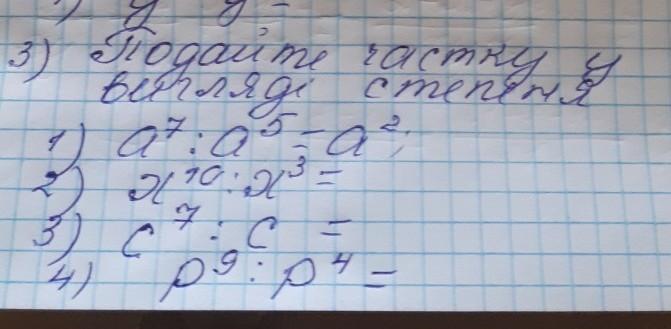 3) Подайте частку у
вигляді степеня
1) a⁷ : a⁵ = a²;
2) x¹⁰ : x³ =
3) c⁷ : c =
4) p⁹ : p⁴ =